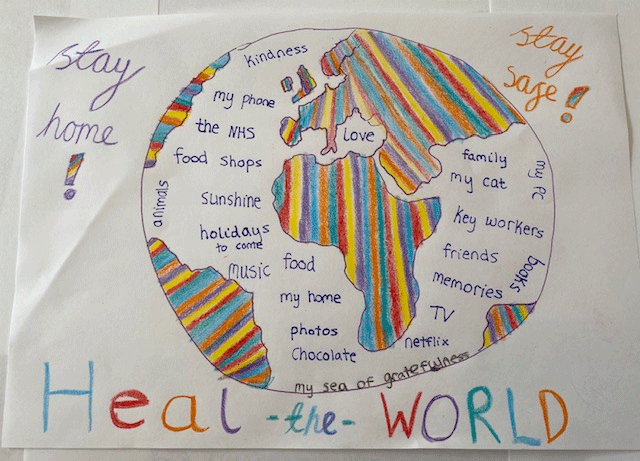 stay
home
!
stay
safe!
kindness
my phone
the NHS
food shops
animals
sunshine
holidays
to come
music
food
my home
photos
Chocolate
love
family
my cat
my PC
key workers
friends
books
memories
TV
netflix
my sea of gratefulness
Heal -the- WORLD